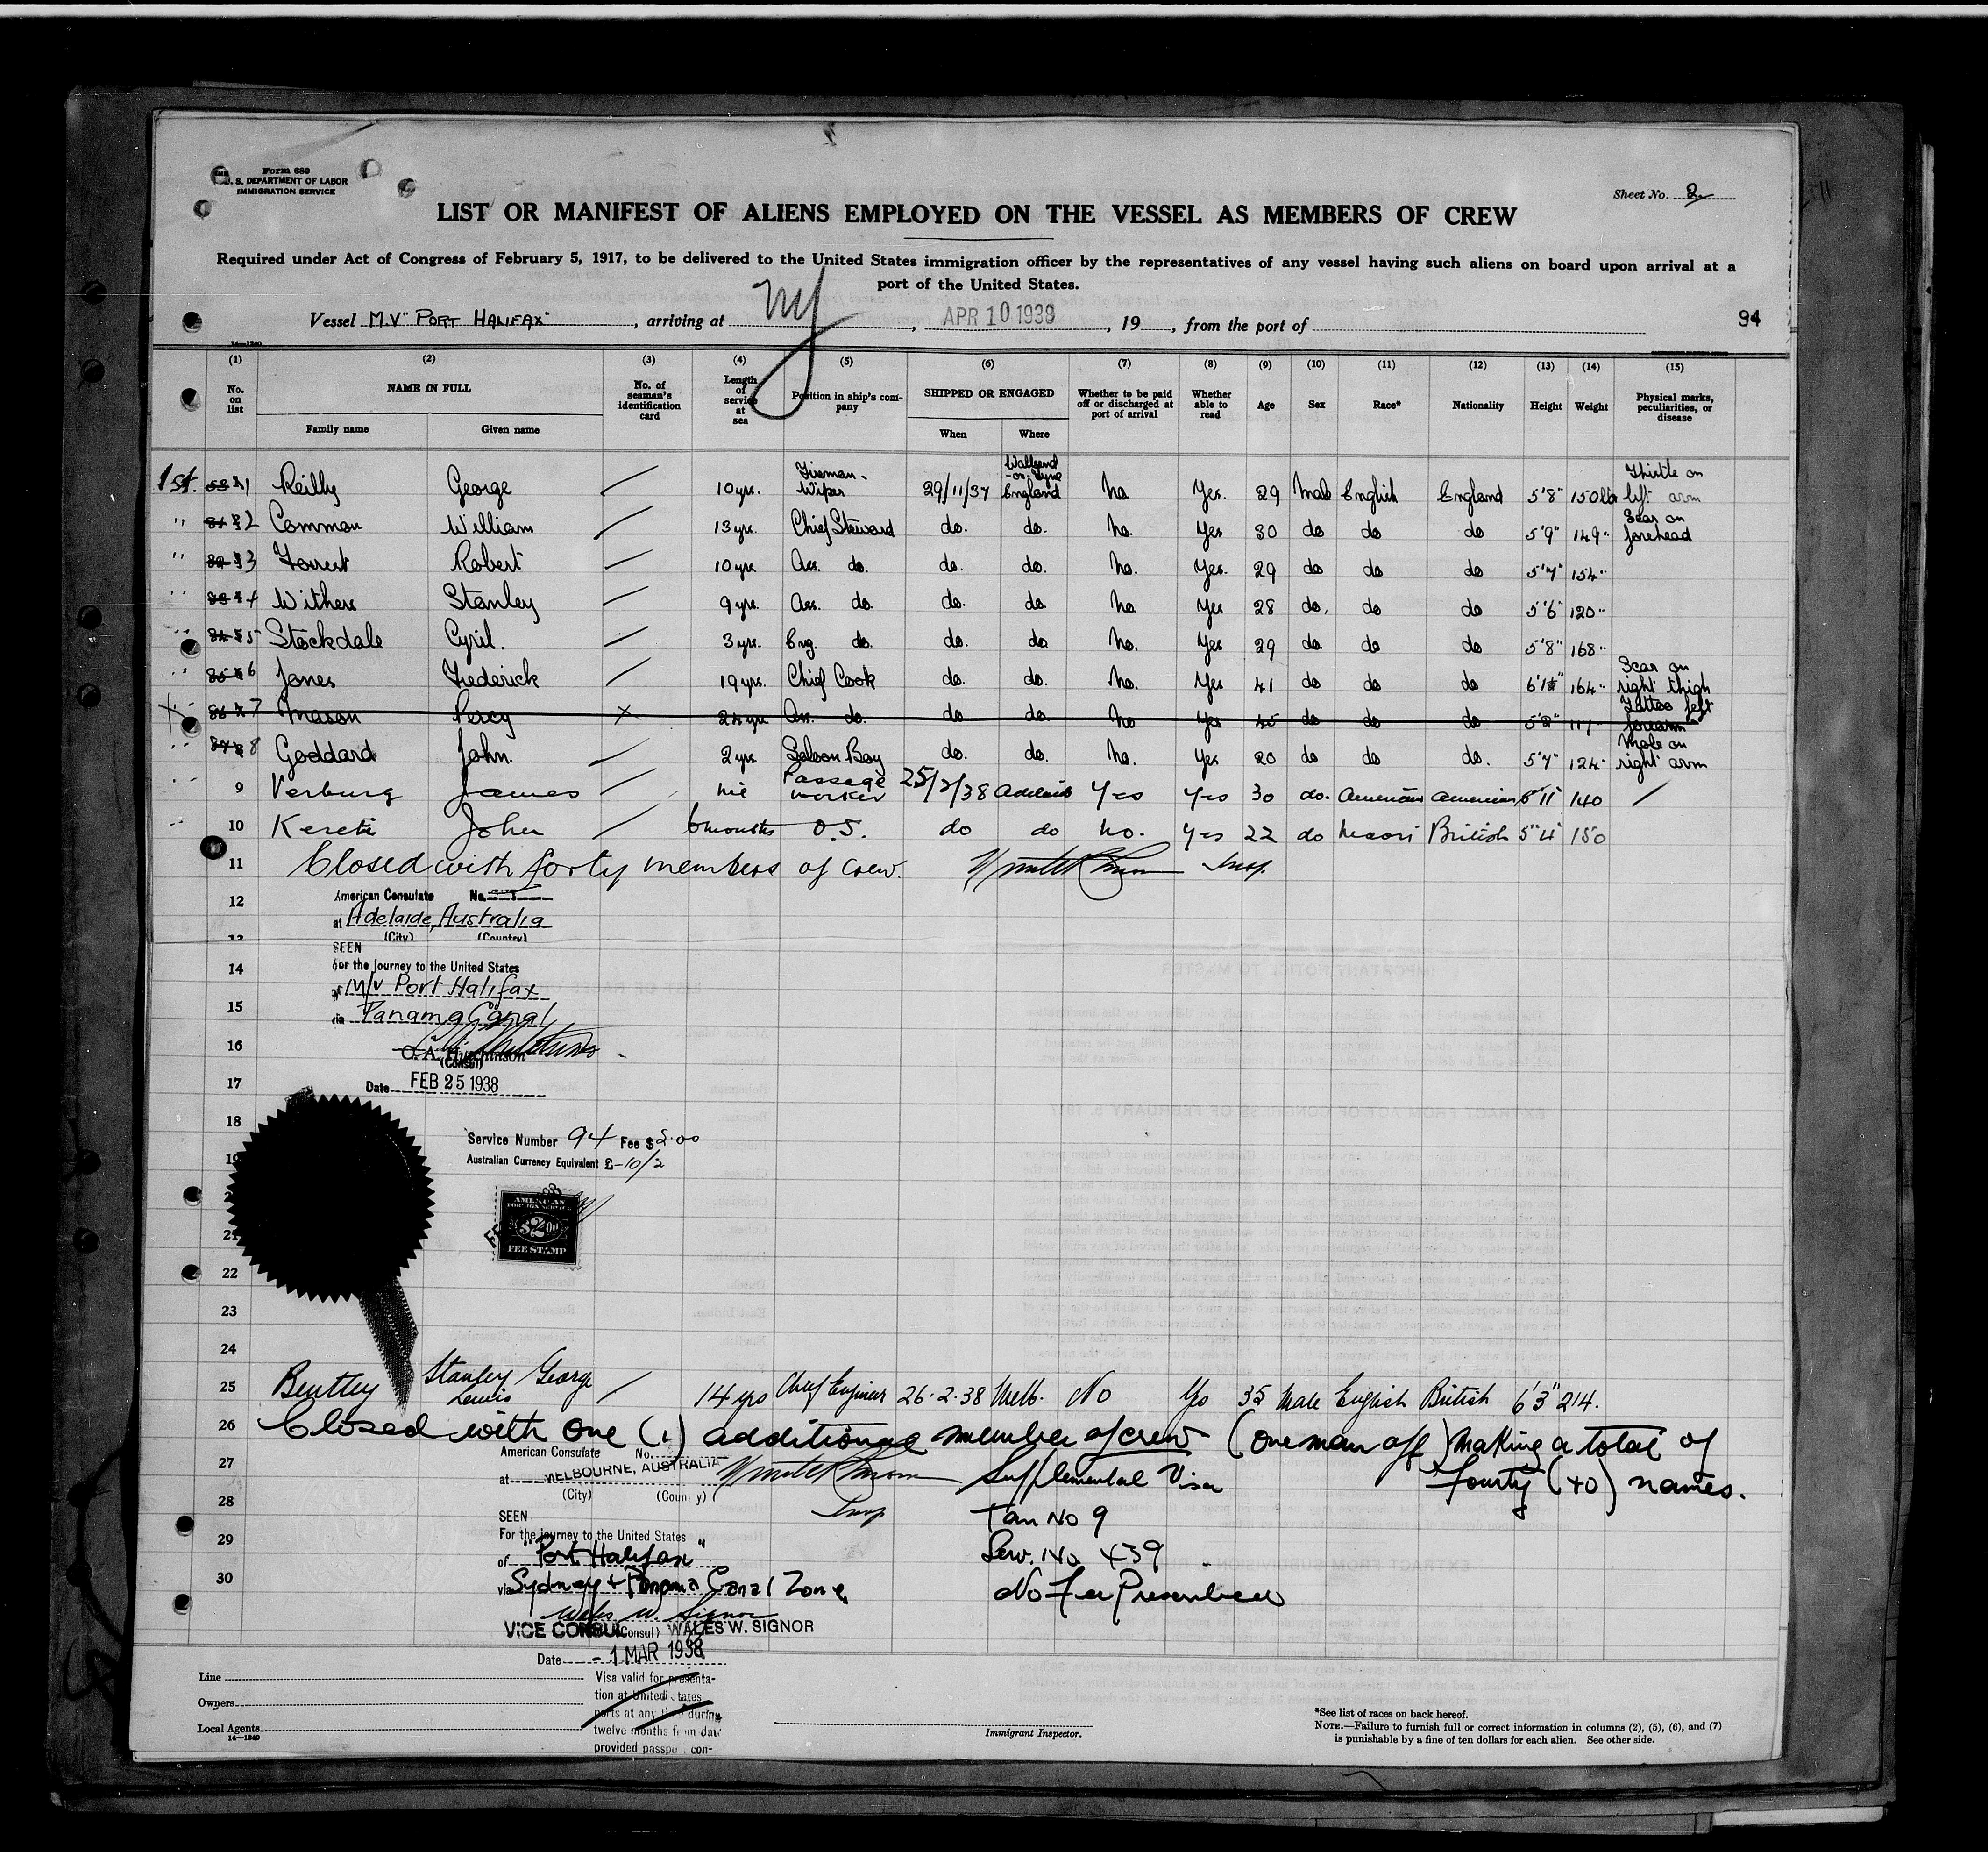 Form 680
U. S. DEPARTMENT OF LABOR
IMMIGRATION SERVICE
Sheet No. 2
LIST OR MANIFEST OF ALIENS EMPLOYED ON THE VESSEL AS MEMBERS OF CREW
Required under Act of Congress of February 5, 1917, to be delivered to the United States immigration officer by the representatives of any vessel having such aliens on board upon arrival at a
port of the United States.
Vessel M.V. "PORT HALIFAX", arriving at NY, APR 10 1938, 19, from the port of
94
14—1240
(1) (2) (3) (4) (5) (6) (7) (8) (9) (10) (11) (12) (13) (14) (15)
No. on list NAME IN FULL No. of seaman's identification card Length of service at sea Position in ship's company SHIPPED OR ENGAGED Whether to be paid off or discharged at port of arrival Whether able to read Age Sex Race* Nationality Height Weight Physical marks, peculiarities, or disease
Family name Given name When Where
1st. 1 Reilly George 10 yrs. Fireman-Wiper 29/11/37 Wallsend-on-Tyne England No. Yes. 29 Male English England 5'8" 150 lbs Thistle on left arm
" 2 Common William 13 yrs. Chief Steward do. do. No. Yes 30 do do do 5'9" 149" Scar on forehead
" 3 Forrest Robert 10 yrs. Ass. do. do. do. No. Yes. 29 do do do 5'7" 154"
" 4 Withers Stanley 9 yrs. Ass. do. do. do. No Yes 28 do. do do 5'6" 120"
" 5 Stockdale Cyril. 3 yrs. Eng. do. do. do No. Yes 29 do do do 5'8" 168"
" 6 Jones Frederick 19 yrs. Chief Cook do. do. No. Yes 41 do do do 164" Scar on right thigh
X 7 Mason Percy X 24 yrs Ass. do. do do. No Yes 45 do do do 5'2" 117" Tattoo left forearm
" 8 Goddard John. 2 yrs. Saloon Boy do. do. No. Yes 20 do do do. 5'7" 124" Mole on right arm
9 Verburg James nil Passage worker 25/2/38 Adelaide Yes Yes 30 do. American American 5'11 140
10 John 6 months O.S. do do No. Yes 22 do Maori British 5'4" 150
11 Closed with forty members of crew. Insp.
12 American Consulate No.
at Adelaide, Australia
(City) (Country)
13
SEEN
14 For the journey to the United States
of M/V Port Halifax
15 via Panama Canal
16 C. A. Hutchinson
(Consul)
17 Date FEB 25 1938
18
Service Number 94 Fee $2.00
19 Australian Currency Equivalent £-10/2
AMERICAN
FOREIGN SERVICE
$2.00
FEE STAMP
21
22
23
24
25 Bentley Stanley George Lewis 14 yrs Chief Engineer 26.2.38 Melb. No Yes 35 Male English British 6'3" 214.
26 Closed with one (1) additional member of crew (one man off) making a total of
fourty (40) names.
27 American Consulate No.
at MELBOURNE, AUSTRALIA
(City) (Country)
Supplemental Visa
28 Insp
SEEN Tan No 9
29 For the journey to the United States
of "Port Halifax" Serv. No. 439
30 via Sydney + Panama Canal Zone No Fee Prescribed
Wales W. Signor
VICE CONSUL (Consul) WALES W. SIGNOR
Date - 1 MAR 1938
Line
Owners
Local Agents
14—1240
Visa valid for presenta-
tion at United States
ports at any time during
twelve months from date
provided passport con-
Immigrant Inspector.
*See list of races on back hereof.
NOTE.—Failure to furnish full or correct information in columns (2), (5), (6), and (7)
is punishable by a fine of ten dollars for each alien. See other side.